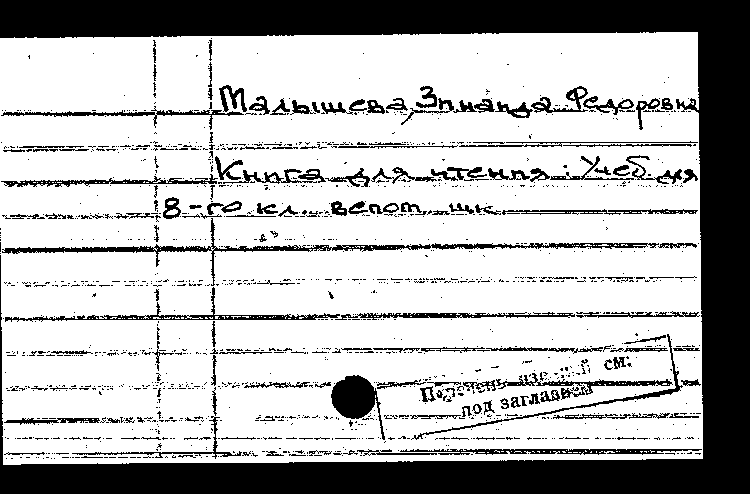 Малышева, Зинаида Федоровна
Книга для чтения: Учеб. для
8-го кл. вспом. шк.
Перечень изданий см.
под заглавием